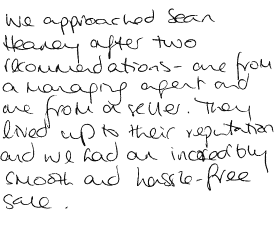 We approached Sean
Heaney after two
recommendations - one from
a managing agent and
one from a seller. They
lived up to their reputation
and we had an incredibly
smooth and hassle-free
sale.